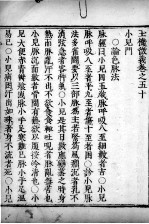 玉機微義卷之五十
小兒門
○論色脉法
脉經曰小兒四五歲脉呼吸八至細數者吉○小兒
脉呼吸八至者平九至者傷十至者困
法多雀鬥要以三部脉爲主若緊爲風癇沉者乳
弦急者客忤氣○小兒是其日數應變蒸之時身
熱而脉亂汗不出不欲食食輒吐哯者脉亂無苦也
小兒脉沉而數者骨間有熱欲以腹按冷清也○小
兒大便赤青瓣飧泄脉小手足寒難已脉小手足溫
易已○小兒病困汗出如珠著身不流者死○小兒